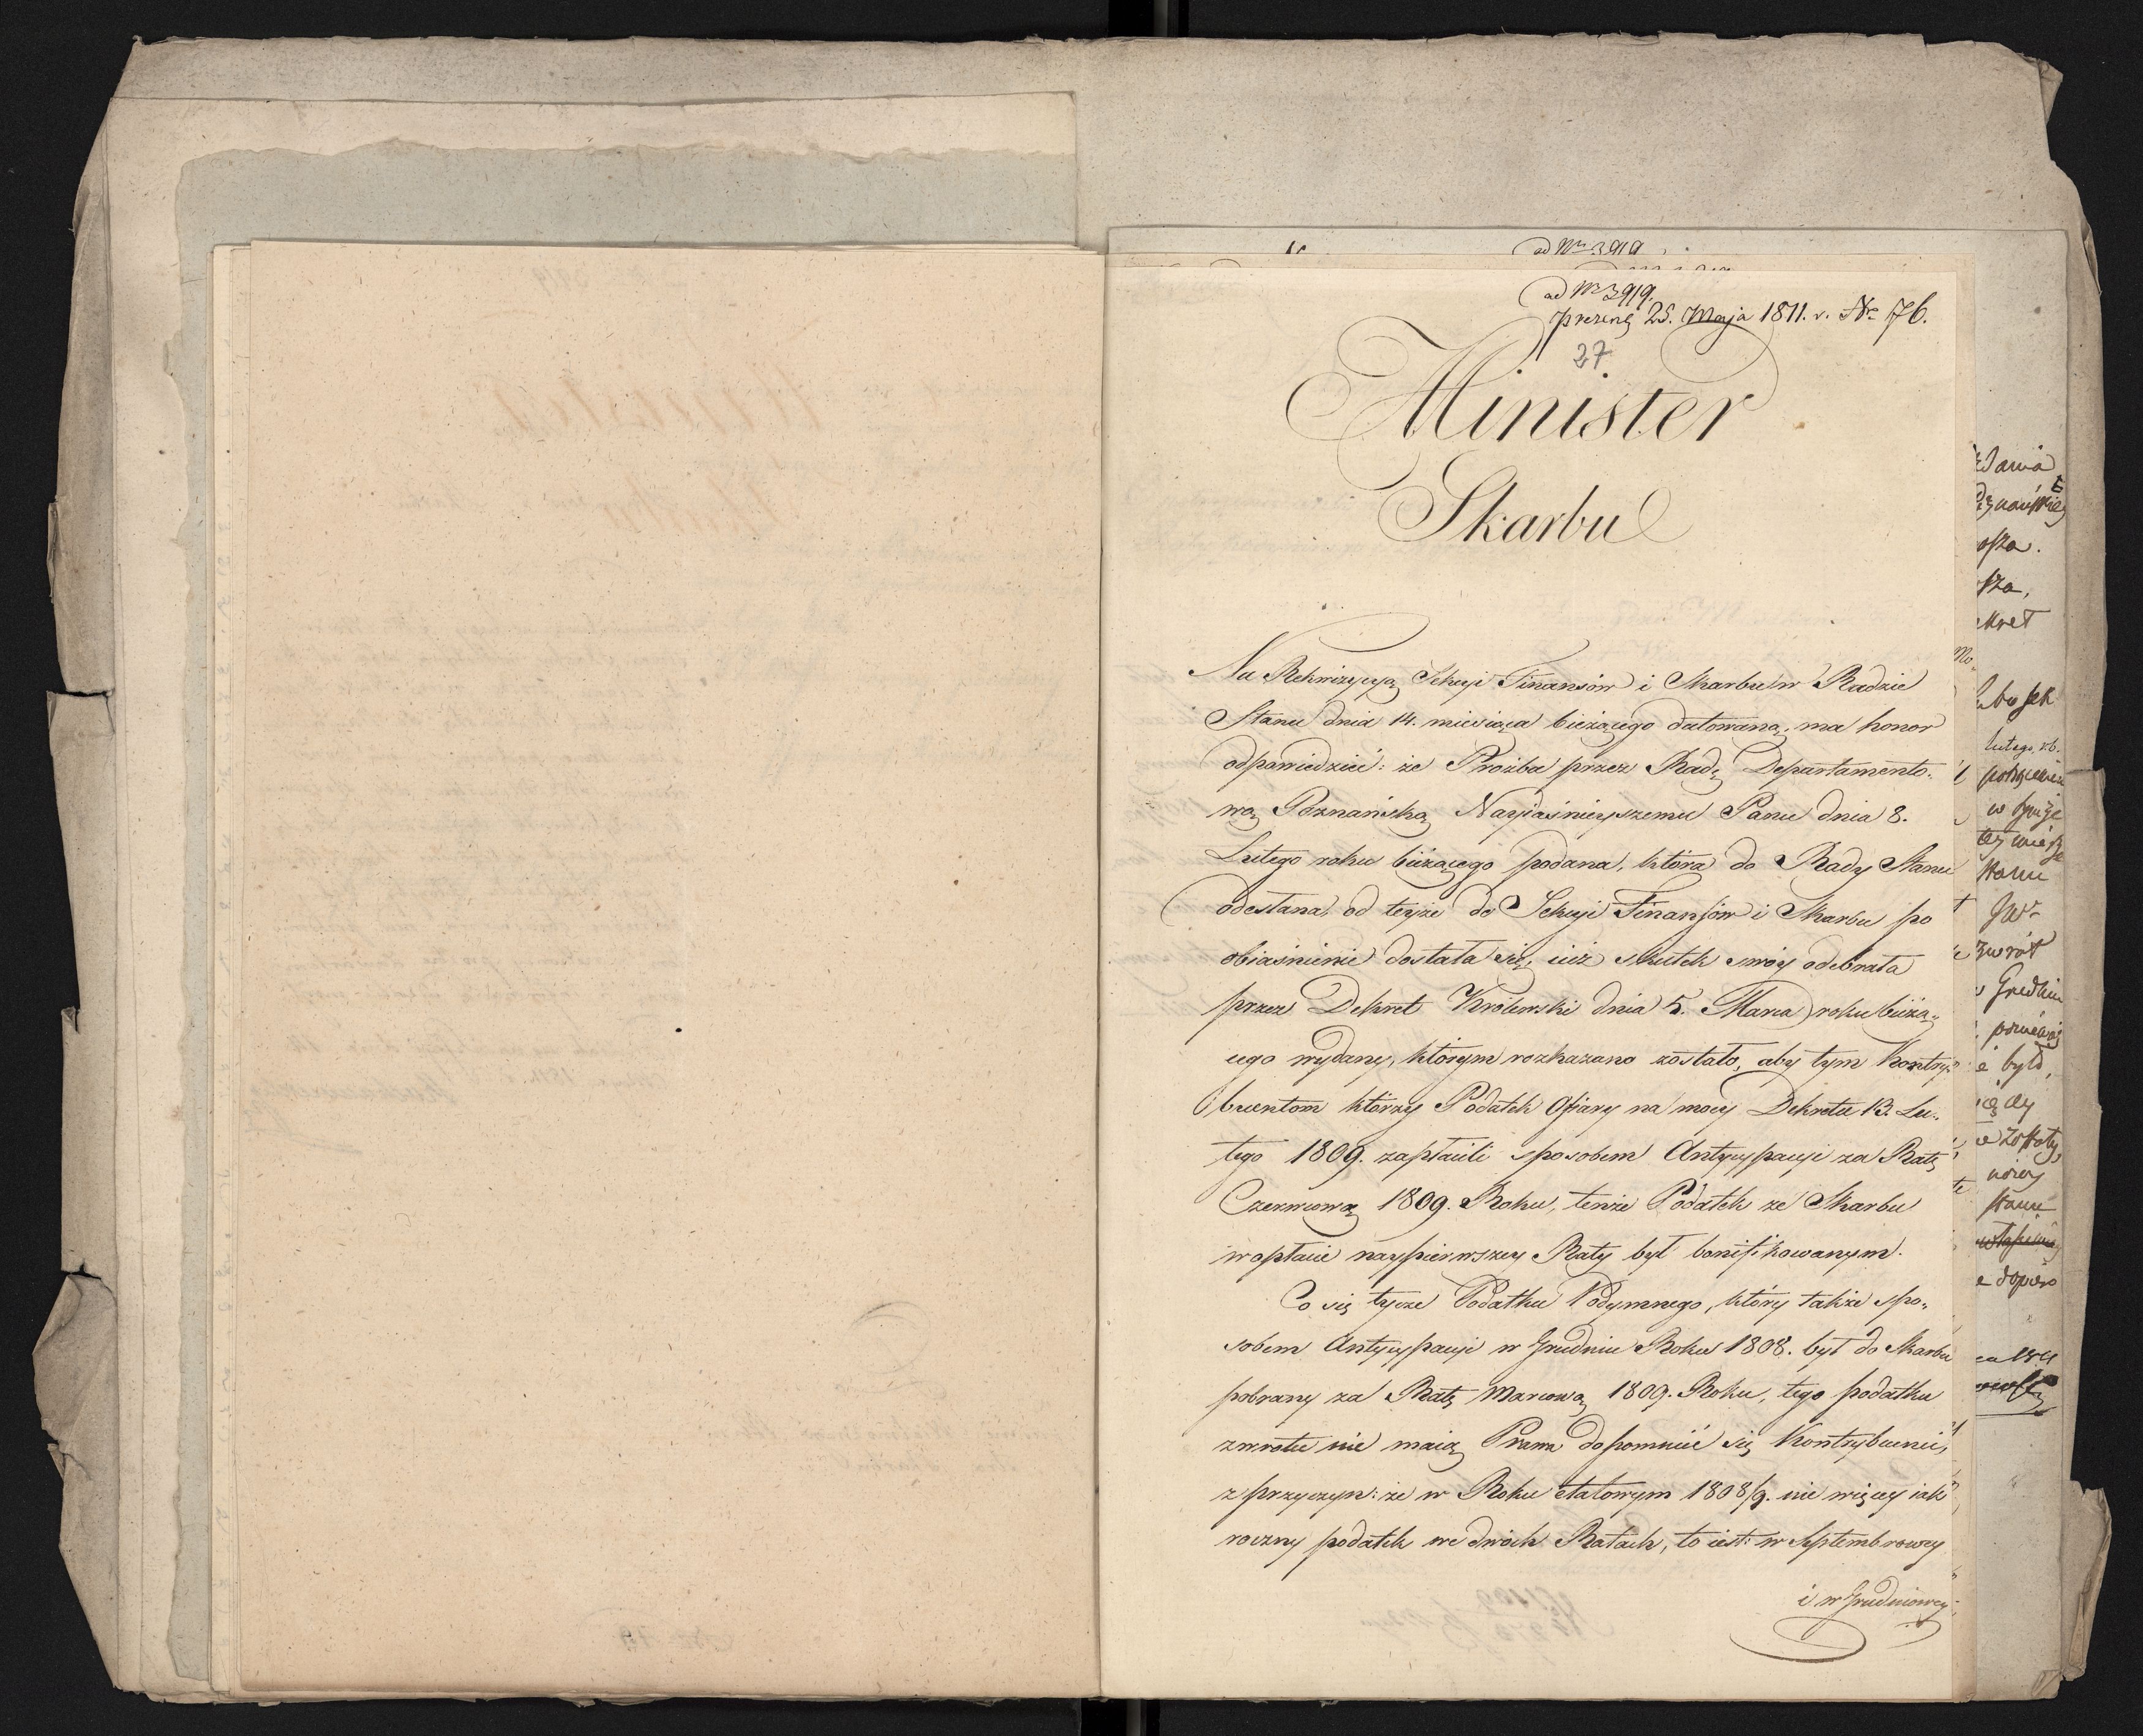 ad Nr 3919
ad Nr 3919.
prezent 25. Maja 1811. r. No 76.
27.
Minister
Skarbu
Na Rekwizycyą Sekcyi Finansów i Skarbu w Radzie
Stanu dnia 14. miesiąca bieżącego datowaną, ma honor
odpowiedzieć: że Proźba przez Radę Departamento-
wą Poznańską Nayiaśnieyszemu Panu dnia 8.
Lutego roku bieżącego podana, która do Rady Stanu
odesłana, od teyże do Sekcyi Finansów i Skarbu po
obiaśnienie dostała się, iuż skutek swóy odebrała
przez Dekret Królewski dnia 5. Marca roku bieżą-
cego wydany, którym rozkazano zostało, aby tym Kontry-
buentom którzy Podatek Ofiary na mocy Dekretu 13. Lu-
tego 1809. zapłacili sposobem Antycypacyi za Ratę
Czerwcową 1809. Roku, tenże Podatek ze Skarbu
w opłacie naypierwszey Raty był bonifikowanym.
Co się tycze Podatku Podymnego, który także spo-
sobem Antycypacyi w Grudniu Roku 1808. był do Skarbu
pobrany za Ratę Marcową 1809. Roku, tego podatku
zwrotu nie maią Prawa dopomnieć się Kontrybuenci,
z przyczyn: że w Roku etatowym 1808/9. nie więcey iak
roczny podatek we dwóch Ratach, to iest: w Septembrowey
i w Grudniowey